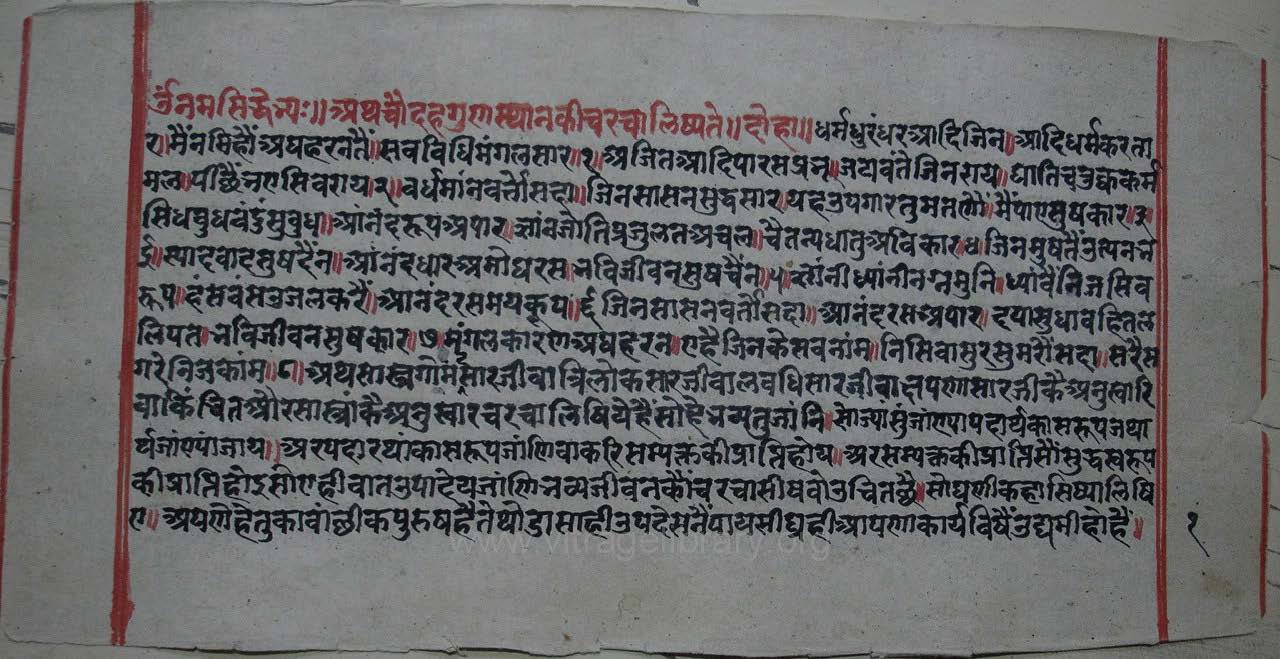 र्उंनमसिद्धेभ्यः॥अथचौदहगुणस्थानकीचरचालिष्यते॥दोहा॥धर्मधुरंधरआदिजिन॥आदिधर्मकरता
र॥मैंनमिहौंअघहरनतैं॥सबविधिमंगलसार॥१॥अजितआदिपारसप्रभू॥जयवतेजिनराय॥घातिचतुष्ककर्म
मल॥पीछैंभएसिवराय॥२॥वर्धमांनवर्त्तोसदा॥जिनसासनसुद्धसार॥यहउपगारतुमतणौं॥मैंपाएसुषकार॥३
सिधबुधवंदुंसुबुधा॥आंनंदरूपअपार॥ज्ञांनजोतिप्रजुलतअचल॥चैतन्यधातुअविकार॥४॥जिनमुषतैंउत्पनभ
ई॥स्यादवादसुषदैंन॥आंनंदधारअमोघरस॥भविजीवनसुषचैंन॥५॥ज्ञांनीध्यांनीनग्नमुनि॥ध्यांवैंनिजसिव
रूप॥दंसवसउजलकरैं॥आनंदरसमयकूप॥६॥जिनसासनवर्त्तौसदा॥आनंदरसअपार॥दयासुधावहितल
लियत॥भविजीवनसुषकार॥७॥मंगलकारणअघहरन॥एहैजिनकेसवनांम॥निसिवासुरसुमरौंसदा॥सरैस
गरेनिजकांम॥८॥अथसास्त्रगोमटसारजीवात्रिलोकसारजीवालवधिसारजीवाक्षपणासारजीकैअनुस्वारि
वाकिंचितऔरसास्त्रांकैअनुस्वारचरचालिषियेहैंसोहेभव्यतूजांनि॥सोज्यासुंजांण्यापदार्थकासरूपजथा
र्थजांण्यांजाय॥अरपदारथांकासरूपजांणिवाकरिसम्यक्तकीप्राप्तिहोय॥अरसम्यक्तकीप्राप्तिसौंसुद्धस्वरूप
कीप्राप्तिहोइसोएहीवातउपादेयजांणिभव्यजीवनकौंचरचासीषवोउचितछै॥सोघणीकहासिष्यालिषि
ए॥अपणेहेतुकावांछीकपुरुषहैतेथोडासाहीउपदेसनैंपायसीघ्रहीआपणाकार्यविषैंउद्यमीहोहैं॥
१
www.vitragelibrary.org